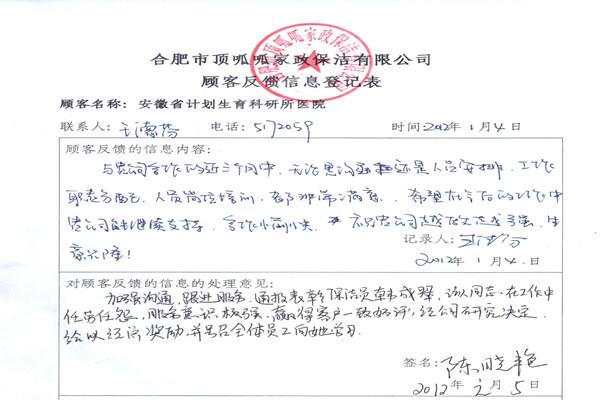 合肥市顶呱呱家政保洁有限公司
顾客反馈信息登记表
顾客名称：安徽省计划生育科研所医院
联系人：王 电话：5172059 时间：2012年1月4日
顾客反馈的信息内容：
与贵公司合作的近三个月中，无论是沟通还是人员安排，工作
职责分配，人员岗位培训，都非常满意。希望在今后的工作中
贵公司能继续支持，合作，祝贵公司越来越强，生
意兴隆！
记录人：
2012年1月4日
对顾客反馈的信息的处理意见：
加强沟通，跟进服务，通报表彰保洁员韩成翠，该同志在工作中
任劳任怨，服务意识极强，赢得客户一致好评，经公司研究决定
给以经济奖励，并号召全体员工向她学习。
签名：陈晓艳
2012年2月5日